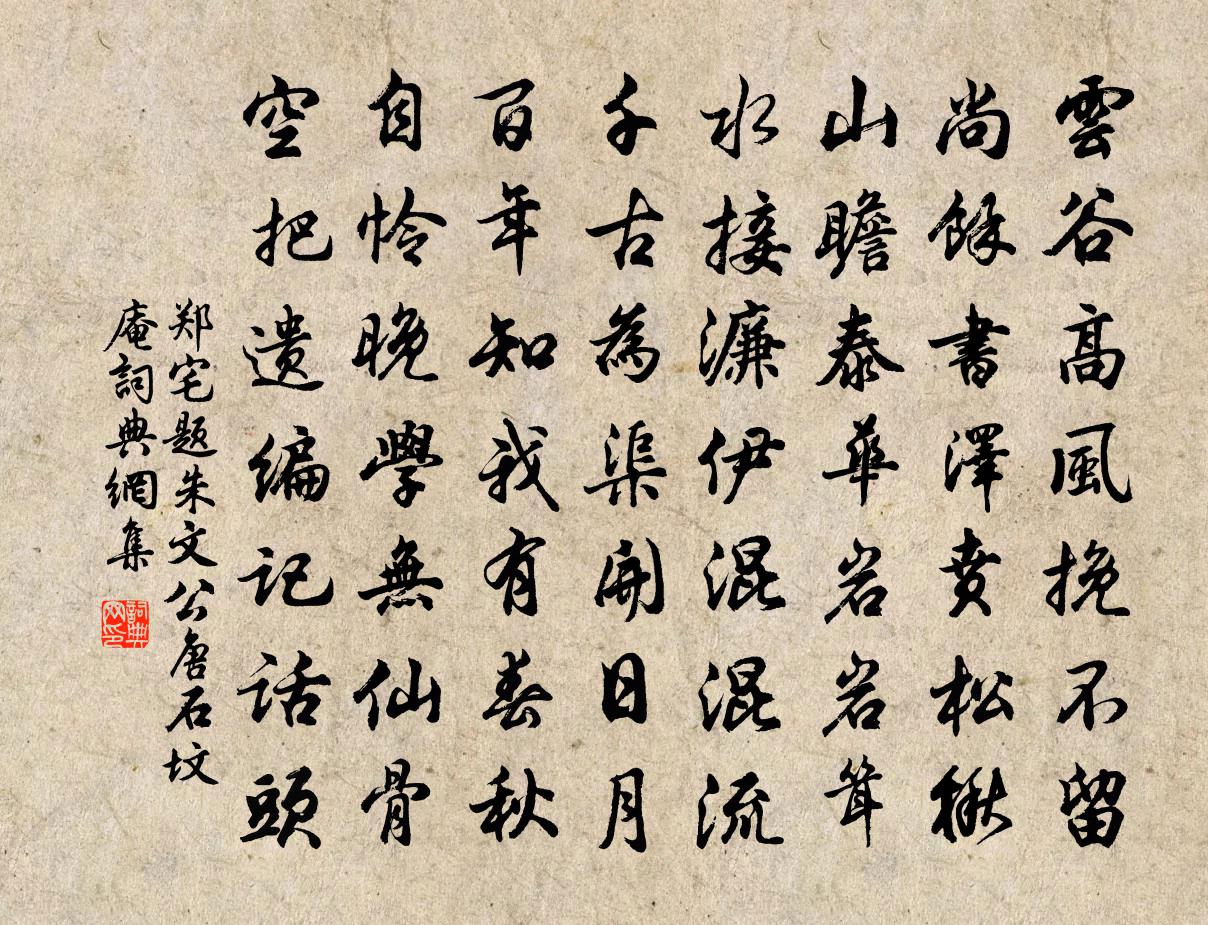 雲谷高風挽不留
尚餘書澤賁松楸
山瞻泰華岩岩聳
水接濂伊混混流
千古為渠開日月
百年知我有春秋
自怜晚學無仙骨
空把遗编记话頭
郑宅题朱文公唐石坟
庵詞典網集
詞典网印